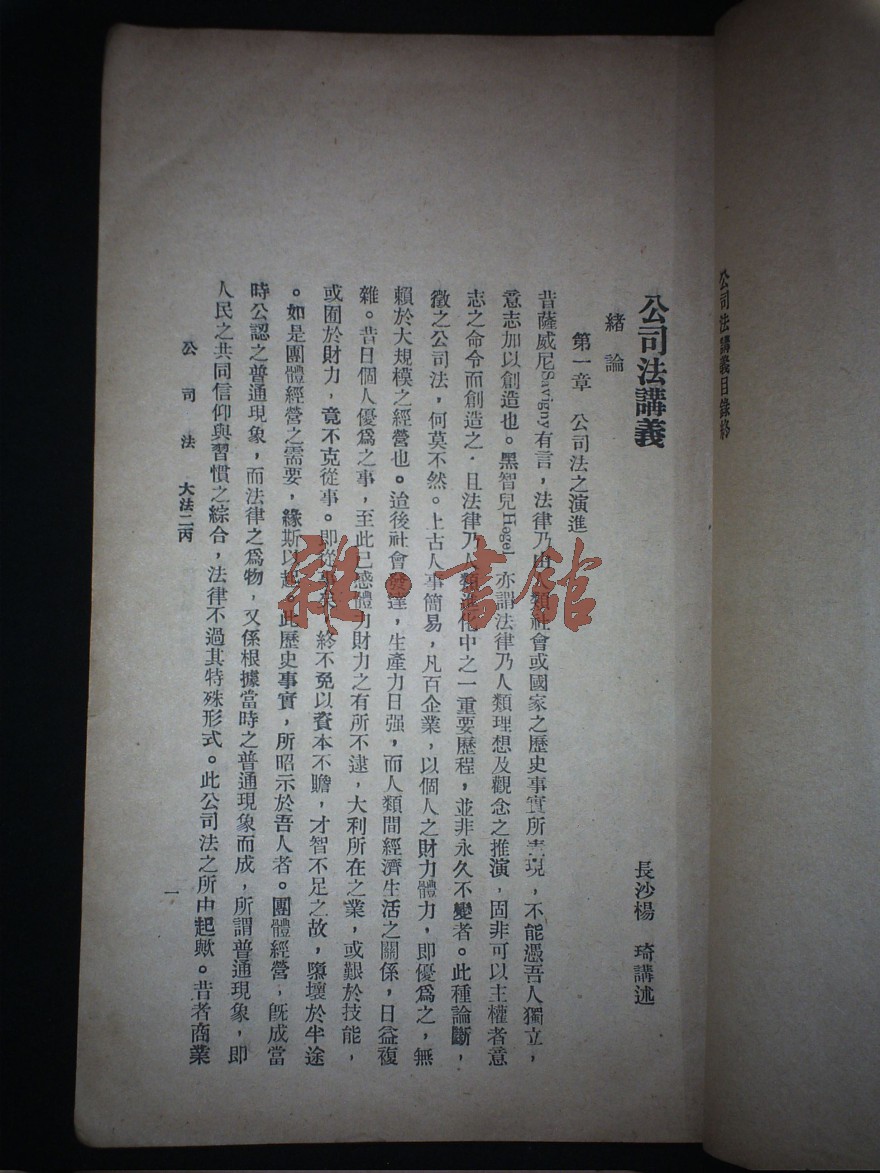 公司法講義目錄終
公司法講義
長沙楊　琦講述
緒論
第一章　公司法之演進
昔薩威尼Savigny有言，法律乃由人類社會或國家之歷史事實所表現，不能憑吾人獨立，
意志加以創造也。黑智兒Hegel　亦謂法律乃人類理想及觀念之推演，固非可以主權者意
志之命令而創造之．且法律乃人類進化中之一重要歷程，並非永久不變者。此種論斷，
徵之公司法，何莫不然。上古人事簡易，凡百企業，以個人之財力體力，即優爲之，無
賴於大規模之經營也。迨後社會發達，生產力日强，而人類間經濟生活之關係，日益複
雜。昔日個人優爲之事，至此已感體力財力之有所不逮，大利所在之業，或艱於技能，
或囿於財力，竟不克從事。即從事矣，終不免以資本不贍，才智不足之故，隳壞於半途
。如是團體經營之需要，緣斯以起。此歷史事實，所昭示於吾人者。團體經營，旣成當
時公認之普通現象，而法律之爲物，又係根據當時之普通現象而成，所謂普通現象，即
人民之共同信仰與習慣之綜合，法律不過其特殊形式。此公司法之所由起歟。昔者商業
公司法　大法二丙
一
雜·書館